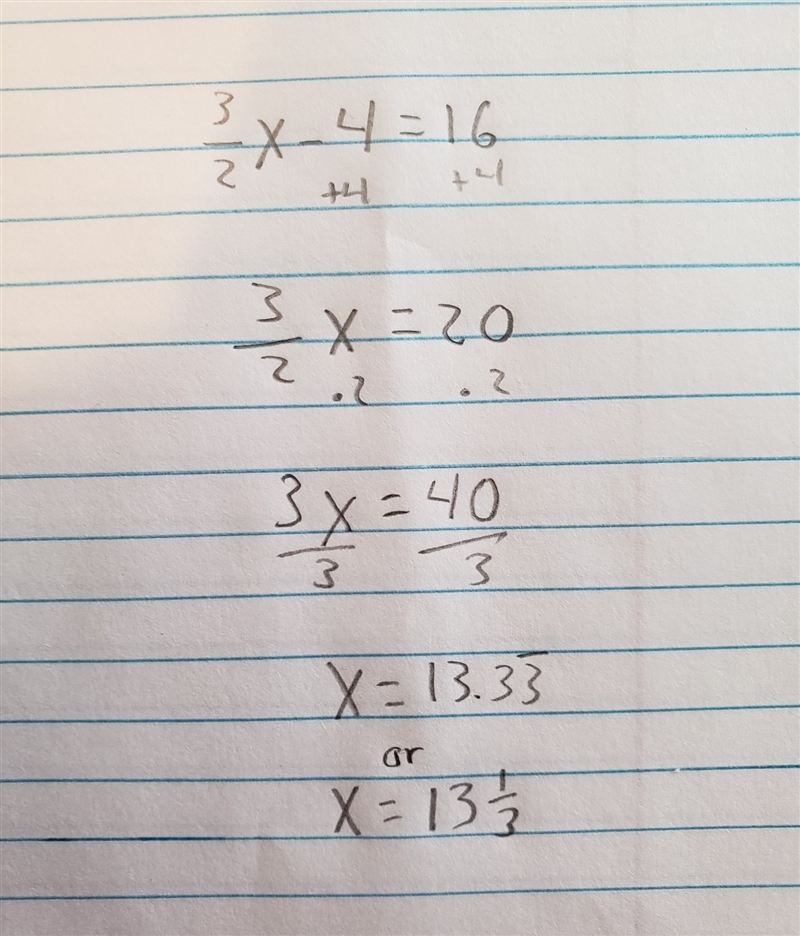 3/2 x - 4 = 16
+4 +4
3/2 x = 20
·2 ·2
3x = 40
3 3
x = 13.33̅
or
x = 13 1/3